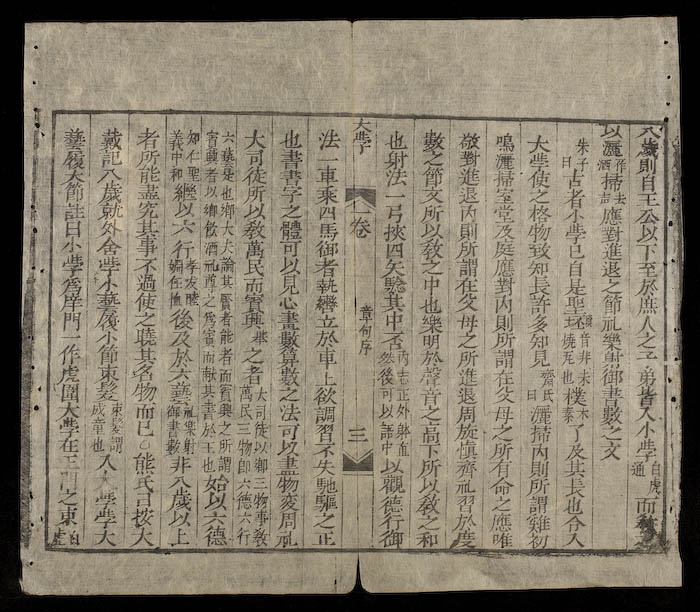 八歲則自王公以下至於庶人之子弟皆入小學白虎通而教之
以灑作洒去声掃應對進退之節礼樂射御書數之文
朱子曰古者小學已自是聖坯音非未燒瓦也樸樸素了及其長也令入
大學使之格物致知長許多知見齊氏曰灑掃內則所謂雞初
鳴灑掃室堂及庭應對內則所謂在父母之所有命之應唯
敬對進退內則所謂在父母之所進退周旋慎齊礼習於度
數之節文所以教之中也樂明於聲音之高下所以教之和
也射法一弓挾四矢驗其中否內志正外體直然後可以語中以觀德行御
大學 一卷 章句序 三
法一車乘四馬御者執轡立於車上欲調習不失馳驅之正
也書書字之體可以見心畫數算數之法可以盡物変周礼
大司徒所以教萬民而賓興之者大司徒以鄉三物事教萬民三物即六德六行
六藝是也鄉大夫論其賢者能者而賓興之所謂賓興者以鄉飲酒礼尊之爲賓而献其書於王也始以六德
知仁聖義中和継以六行孝友睦婣任恤後及於六藝礼樂射御書數非八歲以上
者所能盡究其事不過使之曉其名物而已〇熊氏曰按大
戴記八歲就外舍學小藝履小節束髮束髮謂成童也入大學學大
藝履大節註曰小學爲庠門一作虎闈大學在王宮之東白虎